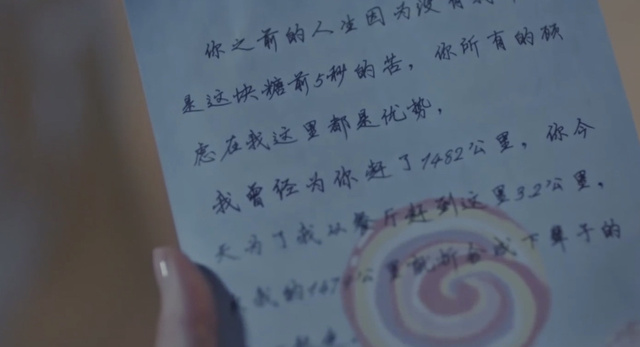 你之前的人生因为没有我
是这块糖前5秒的苦,你所有的顾
虑在我这里都是优势,
我曾经为你赶了1482公里,你今
天为了我从餐厅赶到这里3.2公里,
我的147 公里就折合成下辈子的